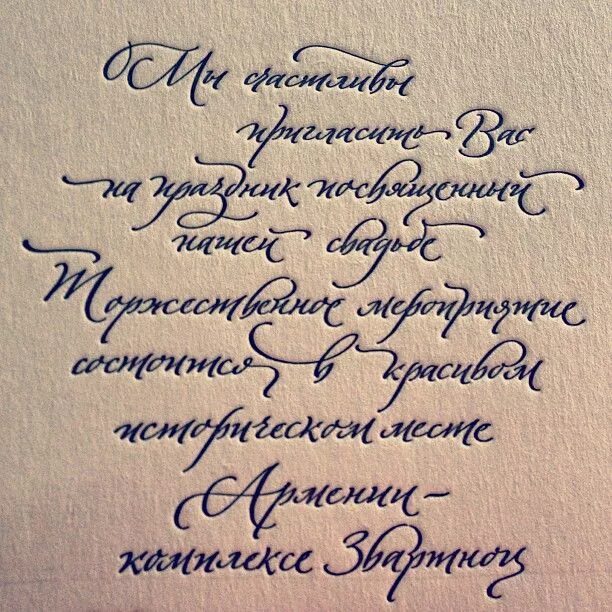 Мы счастливы
пригласить Вас
на праздник посвященный
нашей свадьбе
Торжественное мероприятие
состоится в красивом
историческом месте
Армении –
комплексе Звартноц